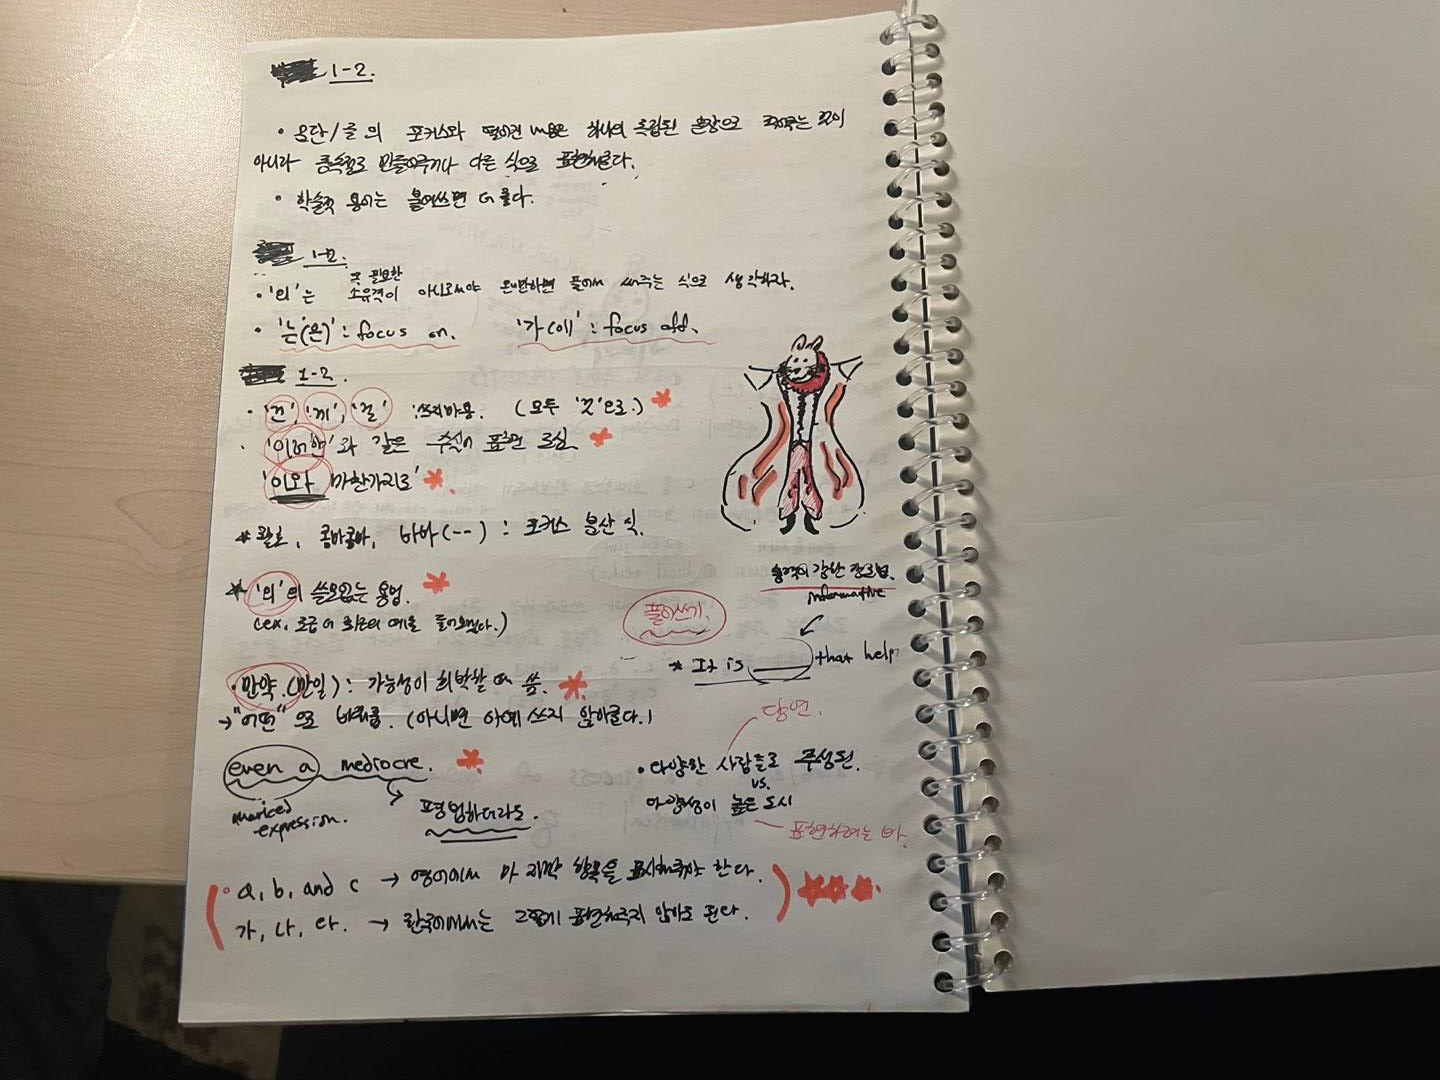 1-2.
• 문단/글의 포커스와 떨어진 내용은 하나의 독립된 문장으로 적어주는 것이
아니라 종속절로 만들어주거나 다른 식으로 표현해준다.
• 학술적 용어는 붙여쓰면 더 좋다.
1-2.
꼭 필요한
• '의'는 소유격이 아니고서야 온만하면 풀어서 써주는 식으로 생각하라.
• '는(은)' : focus on. '가(이)' : focus off.
1-2.
• '건', '게', '걸' 쓰지마용. (모두 '것'으로.)
• '이러한'와 같은 수식어 표현 조심.
'이와 마찬가지로'
* 괄호, 콤마콤마, 바바(--) : 포커스 분산 식.
* '의'의 쓸모없는 용법.
(ex. 조금의 최근의 예를 들어보겠다.)
풀어쓰기.
informative
* It is ____ that help
• 만약.(만일) : 가능성이 희박할 때 씀.
→ "어떤" 으로 바꿔줌. (아니면 아예 쓰지 않아준다.)
당연.
even a mediocre.
marked
expression.
평범하더라도.
• 다양한 사람들로 구성된.
vs.
다양성이 높은 도시
표현하려는 바.
a, b, and c → 영어에서 마지막 항목을 표시해주어야 한다.
가, 나, 다. → 한국어에서는 그렇게 표현해주지 않아도 된다.